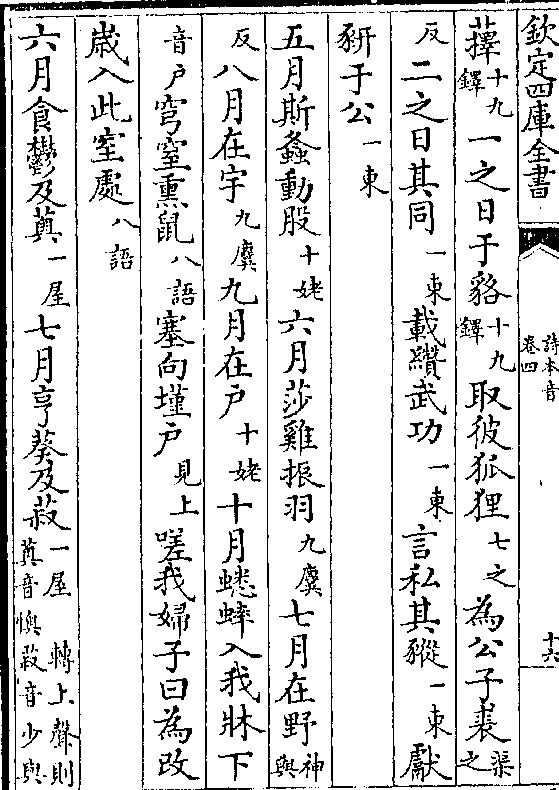 欽定四庫全書 詩本音 卷四 十六
蘀十九鐸一之日于貉十九鐸取彼狐狸七之為公子裘渠之
反二之日其同一東載纘武功一東言私其豵一東獻
豣于公一東
五月斯螽動股十姥六月莎雞振羽九麌七月在野神與
反八月在宇九麌九月在户十姥十月蟋蟀入我牀下
音户穹窒熏鼠八語塞向墐户見上嗟我婦子曰為改
歳入此室處八語
六月食鬱及薁一屋七月亨葵及菽一屋轉上聲則薁音懊菽音少與